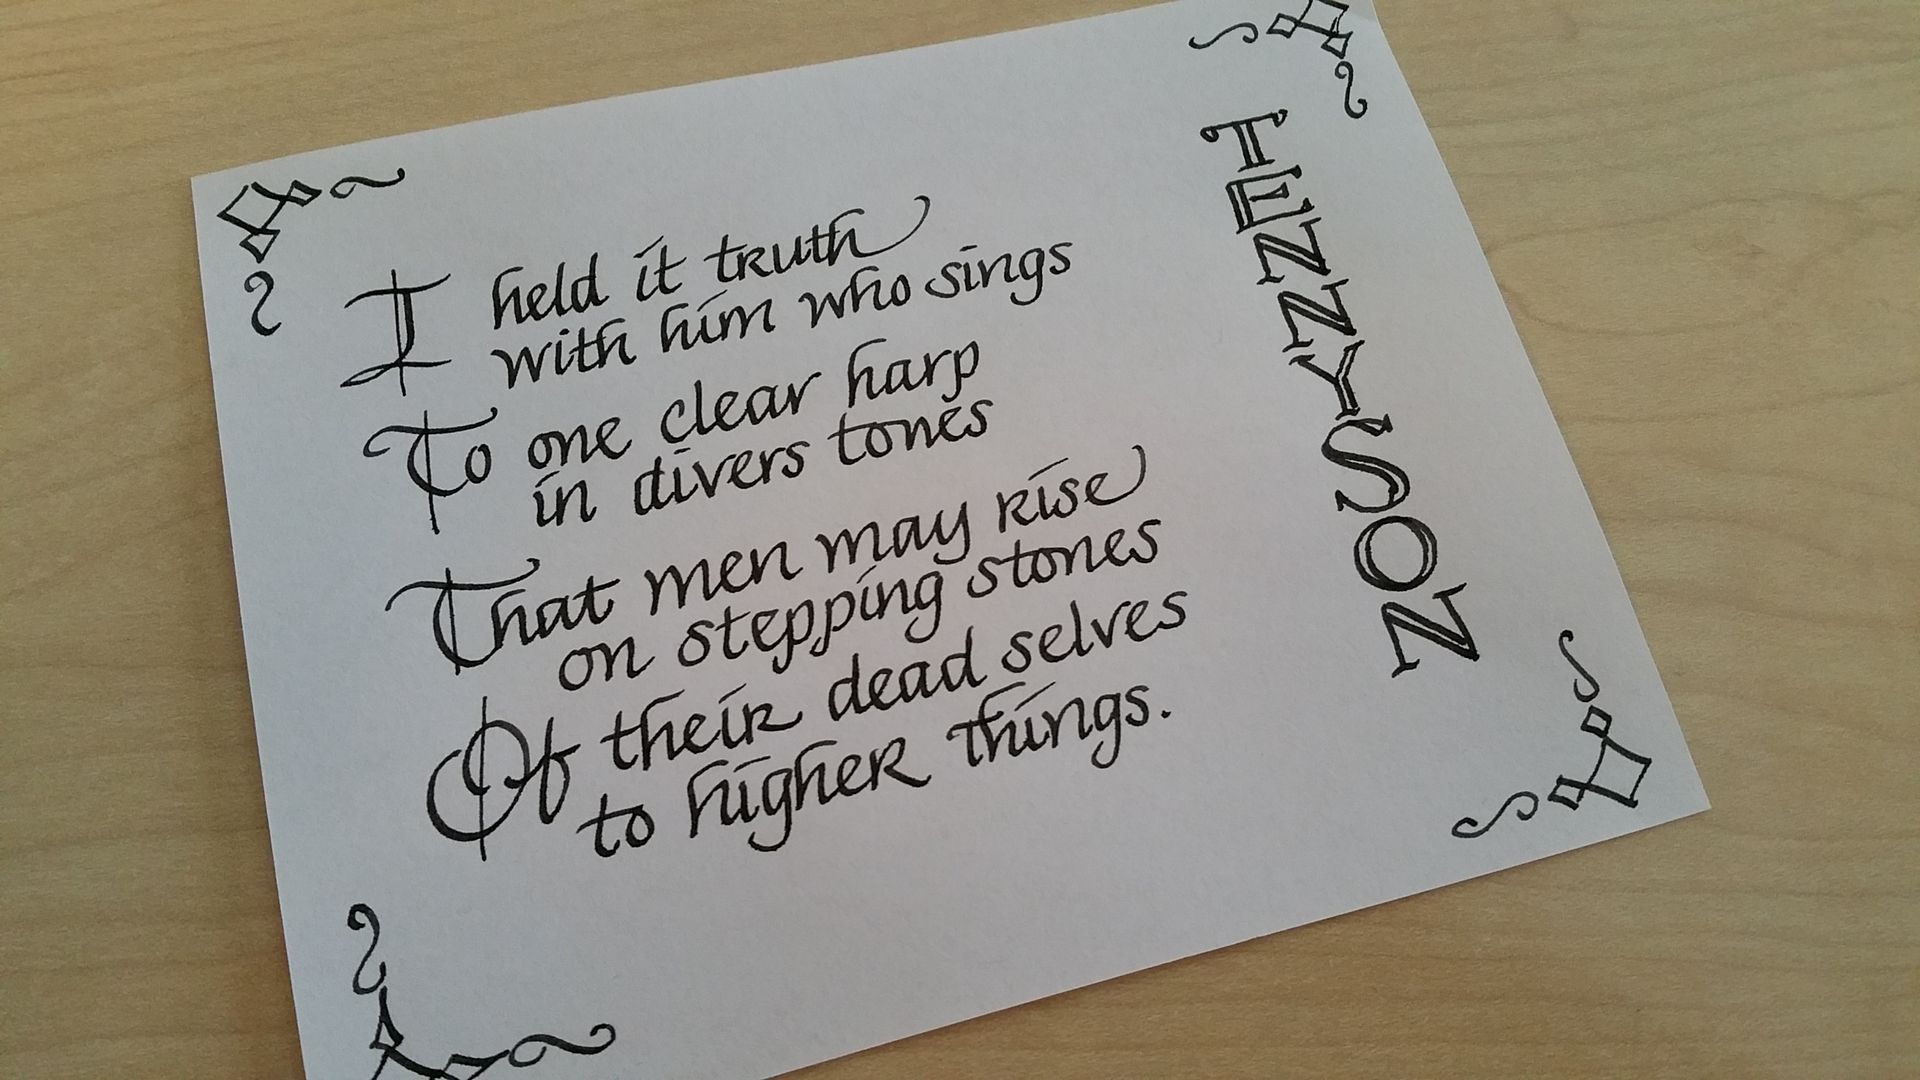 I held it truth
with him who sings
To one clear harp
in divers tones
That men may rise
on stepping stones
Of their dead selves
to higher things.
TENNYSON